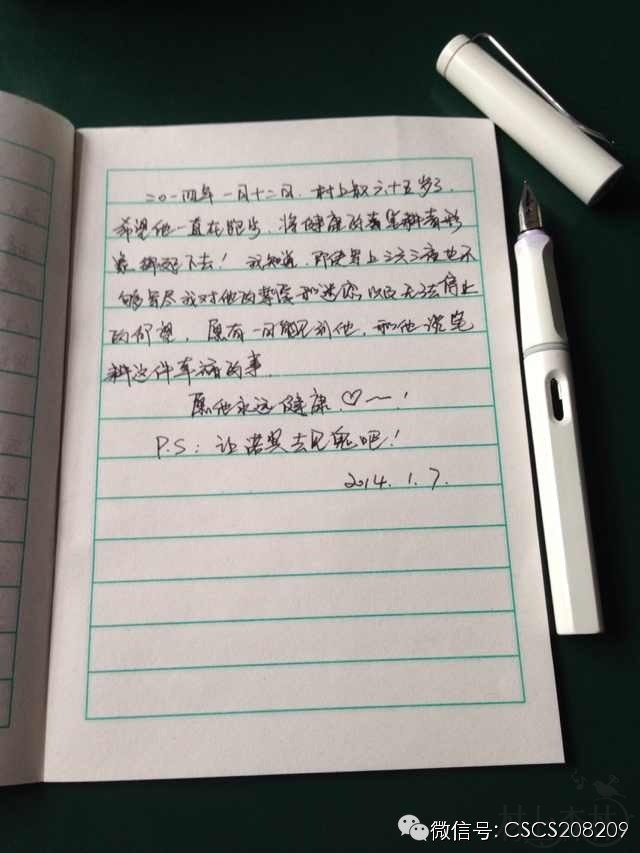 二〇一四年一月十二日,村上叔六十五岁了,
希望他一直在跑步,将健康的着笔耕者形
象绑起下去!我知道,即使写上三天三夜也不
够写尽我对他的尊崇和迷恋以及无法停止
的仰望,愿有一日能见到他,和他谈笔
耕这件幸福的事。
愿他永远健康♡~!
P.S:让诺奖去见鬼吧!
2014.1.7.
微信号: CSCS208209